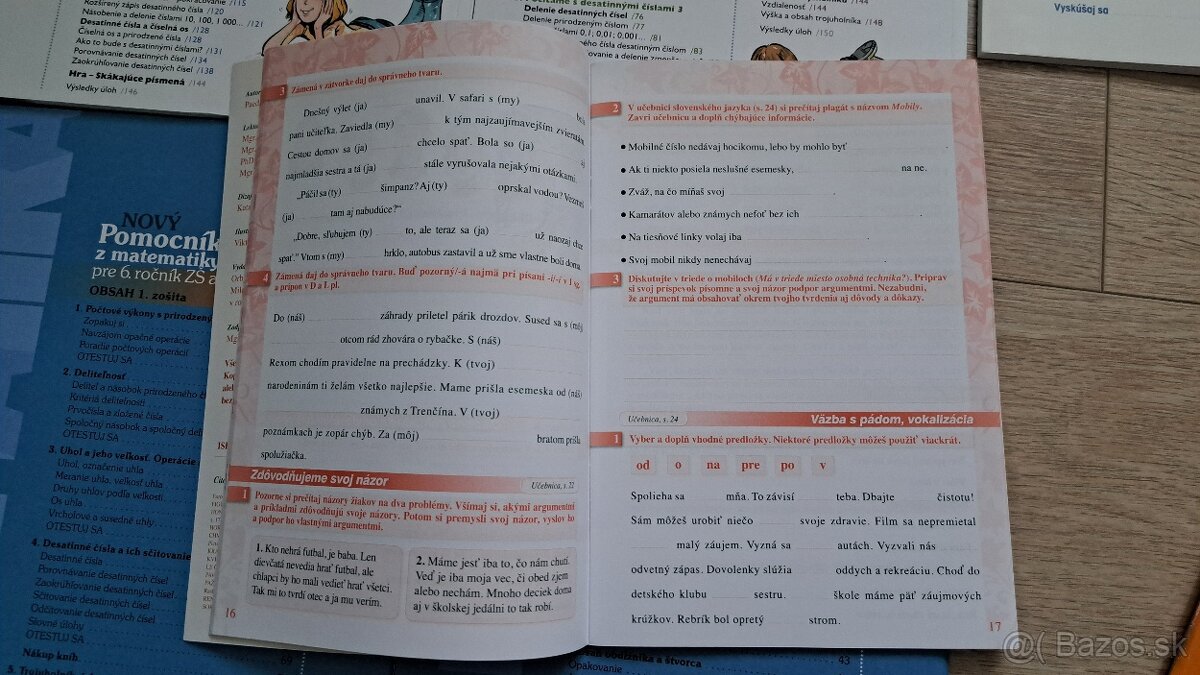 Rozšírený zápis desatinného čísla /120
Násobenie a delenie číslami 10, 100, 1 000... /121
Desatinné čísla a číselná os /128
Číselná os a prirodzené čísla /128
Ako to bude s desatinnými číslami? /131
Porovnávanie desatinných čísel /134
Zaokrúhľovanie desatinných čísel /138
Hra – Skákajúce písmená /144
Výsledky úloh /146
s desatinnými číslami 3
Delenie desatinných čísel /76
Delenie prirodzeným číslom /77
číslami 0,1; 0,01; 0,001... /81
desatinným číslom /83
Vzdialenosť /144
Výška a obsah trojuholníka /148
Výsledky úloh /150
Vyskúšaj sa
NOVÝ
Pomocník
z matematiky
pre 6. ročník ZŠ a
OBSAH 1. zošita
1. Počtové výkony s prirodzený
Zopakuj si
Navzájom opačné operácie
Poradie počtových operácií
OTESTUJ SA
2. Deliteľnosť
Deliteľ a násobok prirodzeného č
Kritériá deliteľnosti
Prvočísla a zložené čísla
Spoločný násobok a spoločný deli
OTESTUJ SA
3. Uhol a jeho veľkosť. Operácie
Uhol, označenie uhla
Meranie uhla, veľkosť uhla
Druhy uhlov podľa veľkosti
Os uhla
Vrcholové a susedné uhly
OTESTUJ SA
4. Desatinné čísla a ich sčítovanie
Desatinné čísla
Porovnávanie desatinných čísel
Zaokrúhľovanie desatinných čísel
Sčítovanie desatinných čísel
Odčítovanie desatinných čísel
Slovné úlohy
OTESTUJ SA
Nákup kníh
69
3 Zámená v zátvorke daj do správneho tvaru.
Dnešný výlet (ja) unavil. V safari s (my) bola
pani učiteľka. Zaviedla (my) k tým najzaujímavejším zvieratám.
Cestou domov sa (ja) chcelo spať. Bola so (ja) aj
najmladšia sestra a tá (ja) stále vyrušovala nejakými otázkami.
„Páčil sa (ty) šimpanz? Aj (ty) oprskal vodou? Vezmeš
(ja) tam aj nabudúce?“
„Dobre, sľubujem (ty) to, ale teraz sa (ja) už naozaj chce
spať.“ Vtom s (my) hrklo, autobus zastavil a už sme vlastne boli doma.
4 Zámená daj do správneho tvaru. Buď pozorný/-á najmä pri písaní -i/-í v I sg.
a prípon v D a L pl.
Do (náš) záhrady priletel párik drozdov. Sused sa s (môj)
otcom rád zhovára o rybačke. S (náš)
Rexom chodím pravidelne na prechádzky. K (tvoj)
narodeninám ti želám všetko najlepšie. Mame prišla esemeska od (náš)
známych z Trenčína. V (tvoj)
poznámkach je zopár chýb. Za (môj) bratom prišla
spolužiačka.
Zdôvodňujeme svoj názor
Učebnica, s. 22
1 Pozorne si prečítaj názory žiakov na dva problémy. Všímaj si, akými argumentmi
a príkladmi zdôvodňujú svoje názory. Potom si premysli svoj názor, vyslov ho
a podpor ho vlastnými argumentmi.
1. Kto nehrá futbal, je baba. Len
dievčatá nevedia hrať futbal, ale
chlapci by ho mali vedieť hrať všetci.
Tak mi to tvrdí otec a ja mu verím.
2. Máme jesť iba to, čo nám chutí.
Veď je iba moja vec, či obed zjem
alebo nechám. Mnoho detiek doma
aj v školskej jedálni to tak robí.
16
2 V učebnici slovenského jazyka (s. 24) si prečítaj plagát s názvom Mobily.
Zavri učebnicu a doplň chýbajúce informácie.
● Mobilné číslo nedávaj hocikomu, lebo by mohlo byť .
● Ak ti niekto posiela neslušné esemesky, na ne.
● Zváž, na čo míňaš svoj .
● Kamarátov alebo známych nefoť bez ich .
● Na tiesňové linky volaj iba .
● Svoj mobil nikdy nenechávaj .
3 Diskutujte v triede o mobiloch (Má v triede miesto osobná technika?). Priprav
si svoj príspevok písomne a svoj názor podpor argumentmi. Nezabudni,
že argument má obsahovať okrem tvojho tvrdenia aj dôvody a dôkazy.
Učebnica, s. 24
Väzba s pádom, vokalizácia
1 Vyber a doplň vhodné predložky. Niektoré predložky môžeš použiť viackrát.
od o na pre po v
Spolieha sa mňa. To závisí teba. Dbajte čistotu!
Sám môžeš urobiť niečo svoje zdravie. Film sa nepremietal
malý záujem. Vyzná sa autách. Vyzvali nás
odvetný zápas. Dovolenky slúžia oddych a rekreáciu. Choď do
detského klubu sestru. škole máme päť záujmových
krúžkov. Rebrík bol opretý strom.
17
43
Opakovanie
@( Bazos.sk